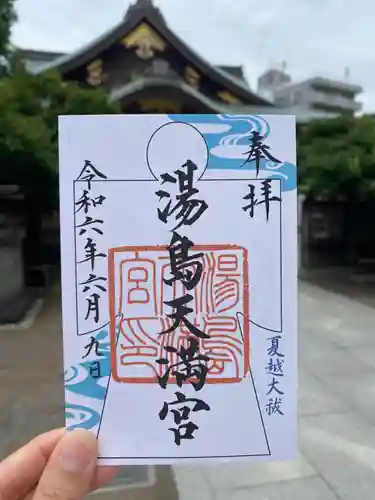 奉拝
湯島天満宮
夏越大祓
令和六年六月九日